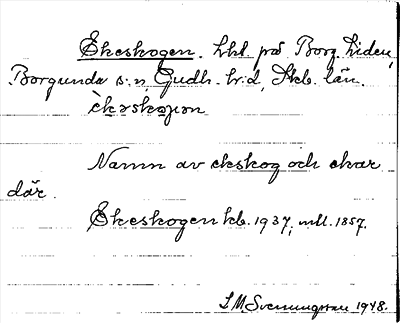 Ekeskogen. Lht. på Borg. Liden,
Borgunda s:n, Gudh. h:d, Skb. län.
èkəskoɡən
Namn av ekskog och ekar
där.
Ekeskogen kb. 1937, mtl. 1857.
LM Svenungsson 1948.